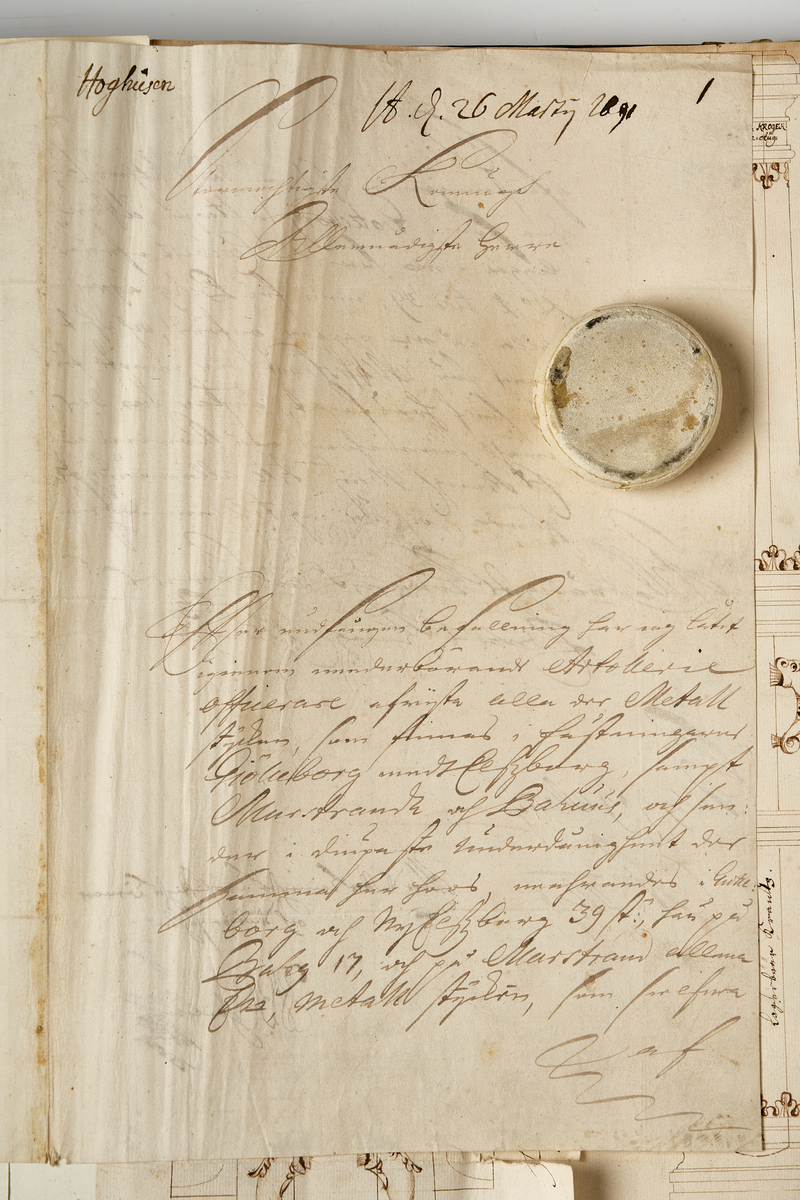 Hoghusen
A. d. 26 Marty 1691
1
Stormechtigste Konungh
Allernådigste Herre
Effter undfången befallning har iag låtit
igienom wederbörande Artollerie
officerare afrijta alla de Metall
stycken, som finnas i fästningarne
Giötheborg medh Elfzborg, sampt
Marstrandh och Bahuus, och sen-
der i diupaste underdånigheet der
samma här hoos, warandes i Giöthe-
borg och Ny Elfzborg 39 st:, här på
17, och på Marstrand allena
metall stycken, som
af
KROGER